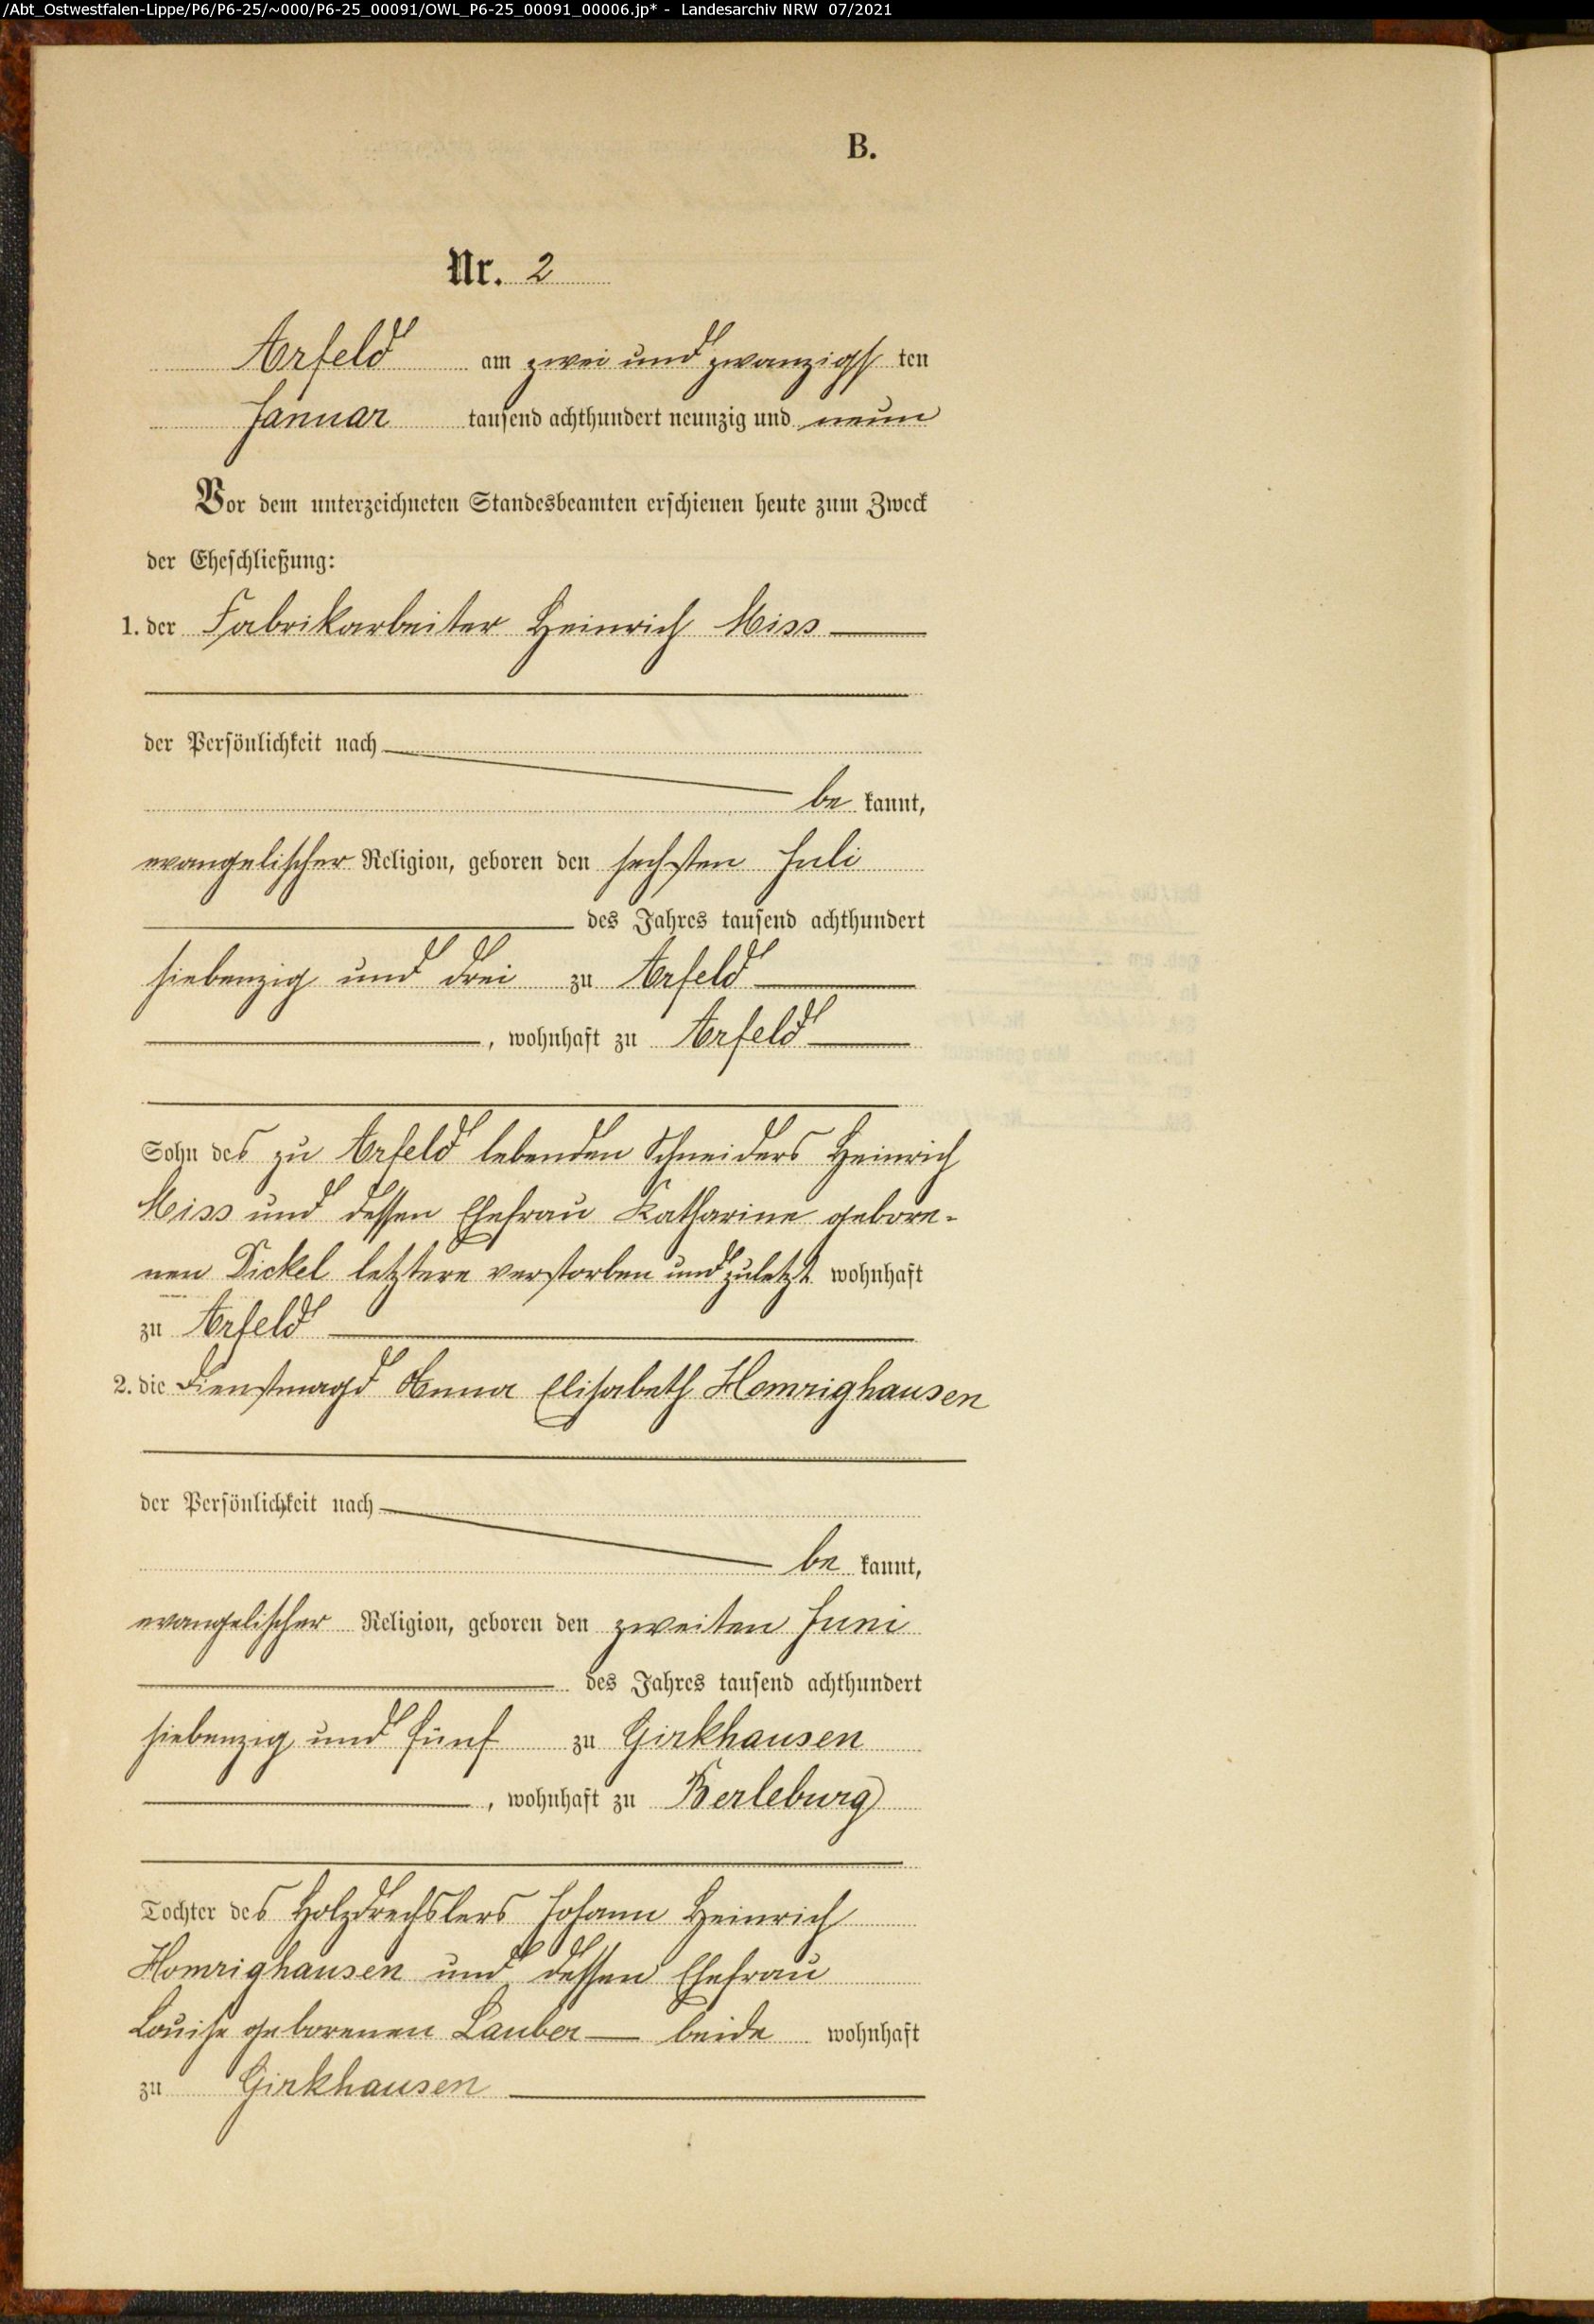 /Abt_Ostwestfalen-Lippe/P6/P6-25/~000/P6-25_00091/OWL_P6-25_00091_00006.jp* - Landesarchiv NRW 07/2021
B.
Nr. 2
Arfeld am zwei und zwanzigs ten
Januar tausend achthundert neunzig und neun
Vor dem unterzeichneten Standesbeamten erschienen heute zum Zweck
der Eheschließung:
1. der Fabrikarbeiter Heinrich Miss
der Persönlichkeit nach
be kannt,
evangelischer Religion, geboren den sechsten Juli
des Jahres tausend achthundert
siebenzig und drei zu Arfeld
, wohnhaft zu Arfeld
Sohn des zu Arfeld lebenden Schneiders Heinrich
Miss und dessen Ehefrau Katharine gebore-
nen Dickel letztere verstorben und zuletzt wohnhaft
zu Arfeld
2. die Dienstmagd Anna Elisabeth Homrighausen
der Persönlichkeit nach
be kannt,
evangelischer Religion, geboren den zweiten Juni
des Jahres tausend achthundert
siebenzig und fünf zu Girkhausen
, wohnhaft zu Berleburg
Tochter des Holzdrechslers Johann Heinrich
Homrighausen und dessen Ehefrau
Louise geborenen Lauber beide wohnhaft
zu Girkhausen